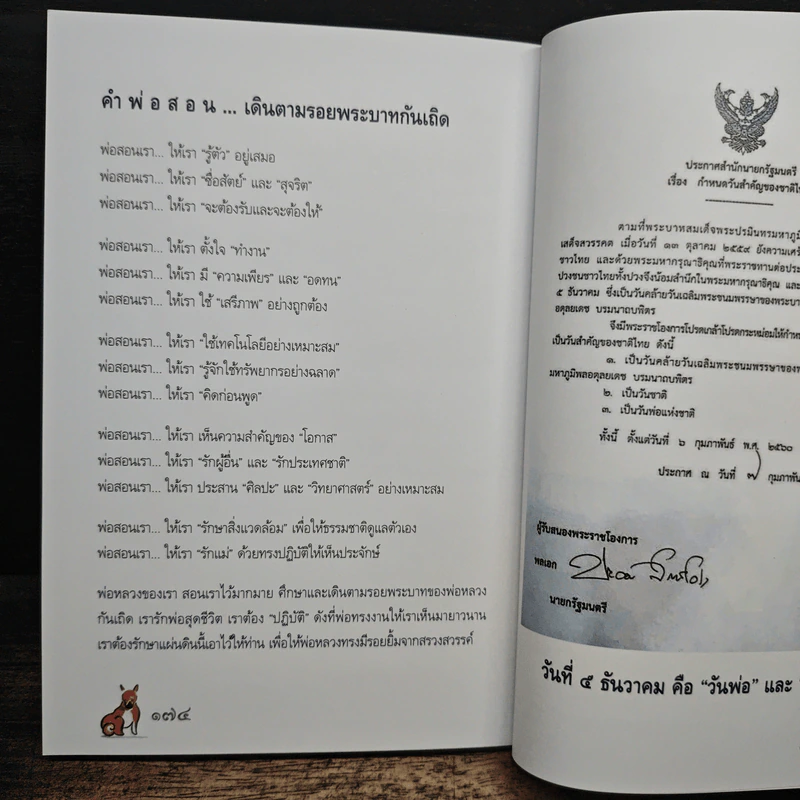 คำ พ่ อ ส อ น ... เดินตามรอยพระบาทกันเถิด
พ่อสอนเรา... ให้เรา “รู้ตัว” อยู่เสมอ
พ่อสอนเรา... ให้เรา “ซื่อสัตย์” และ “สุจริต”
พ่อสอนเรา... ให้เรา “จะต้องรับและจะต้องให้”
พ่อสอนเรา... ให้เรา ตั้งใจ “ทำงาน”
พ่อสอนเรา... ให้เรา มี “ความเพียร” และ “อดทน”
พ่อสอนเรา... ให้เรา ใช้ “เสรีภาพ” อย่างถูกต้อง
พ่อสอนเรา... ให้เรา “ใช้เทคโนโลยีอย่างเหมาะสม”
พ่อสอนเรา... ให้เรา “รู้จักใช้ทรัพยากรอย่างฉลาด”
พ่อสอนเรา... ให้เรา “คิดก่อนพูด”
พ่อสอนเรา... ให้เรา เห็นความสำคัญของ “โอกาส”
พ่อสอนเรา... ให้เรา “รักผู้อื่น” และ “รักประเทศชาติ”
พ่อสอนเรา... ให้เรา ประสาน “ศิลปะ” และ “วิทยาศาสตร์” อย่างเหมาะสม
พ่อสอนเรา... ให้เรา “รักษาสิ่งแวดล้อม” เพื่อให้ธรรมชาติดูแลตัวเอง
พ่อสอนเรา... ให้เรา “รักแม่” ด้วยทรงปฏิบัติให้เห็นประจักษ์
พ่อหลวงของเรา สอนเราไว้มากมาย ศึกษาและเดินตามรอยพระบาทของพ่อหลวง
กันเถิด เรารักพ่อสุดชีวิต เราต้อง “ปฏิบัติ” ดังที่พ่อทรงงานให้เราเห็นมายาวนาน
เราต้องรักษาแผ่นดินนี้เอาไว้ให้ท่าน เพื่อให้พ่อหลวงทรงมีรอยยิ้มจากสรวงสวรรค์
๑๗๔
ประกาศสำนักนายกรัฐมนตรี
เรื่อง กำหนดวันสำคัญของชาติไ
ตามที่พระบาทสมเด็จพระปรมินทรมหาภูมิ
เสด็จสวรรคต เมื่อวันที่ ๑๓ ตุลาคม ๒๕๕๙ ยังความเศร้
ชาวไทย และด้วยพระมหากรุณาธิคุณที่พระราชทานต่อประ
ปวงชนชาวไทยทั้งปวงจึงน้อมสำนึกในพระมหากรุณาธิคุณ และ
๕ ธันวาคม ซึ่งเป็นวันคล้ายวันเฉลิมพระชนมพรรษาของพระบา
อดุลยเดช บรมนาถบพิตร
จึงมีพระราชโองการโปรดเกล้าโปรดกระหม่อมให้กำหน
เป็นวันสำคัญของชาติไทย ดังนี้
๑. เป็นวันคล้ายวันเฉลิมพระชนมพรรษาของพ
มหาภูมิพลอดุลยเดช บรมนาถบพิตร
๒. เป็นวันชาติ
๓. เป็นวันพ่อแห่งชาติ
ทั้งนี้ ตั้งแต่วันที่ ๖ กุมภาพันธ์ พ.ศ. ๒๕๖๐
ประกาศ ณ วันที่ ๗ กุมภาพัน
ผู้รับสนองพระราชโองการ
พลเอก
นายกรัฐมนตรี
วันที่ ๕ ธันวาคม คือ “วันพ่อ” และ